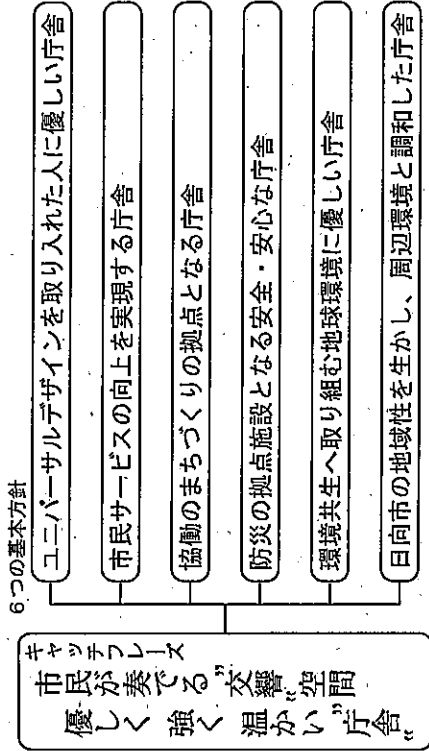 キャッチフレーズ
市民が奏でる”交響“空間
優しく 強く 温かい”庁舎“
6つの基本方針
ユニバーサルデザインを取り入れた人に優しい庁舎
市民サービスの向上を実現する庁舎
協働のまちづくりの拠点となる庁舎
防災の拠点施設となる安全・安心な庁舎
環境共生へ取り組む地球環境に優しい庁舎
日向市の地域性を生かし、周辺環境と調和した庁舎